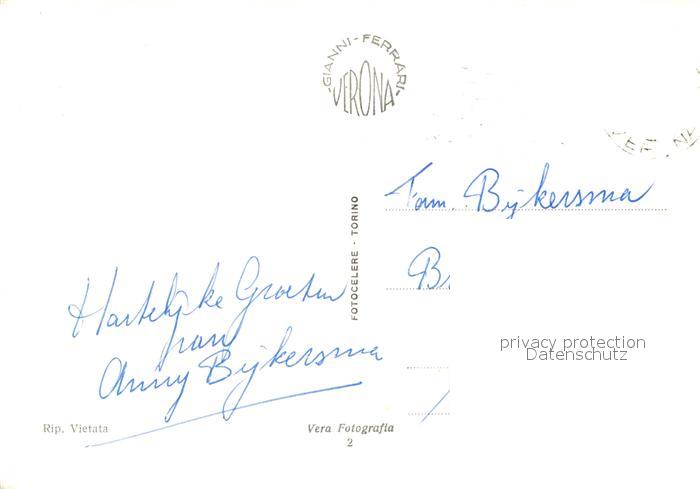 GIANNI-FERRARI-
VERONA
Fam. Bijkersma
FOTOCELERE - TORINO
Hartelijke Groeten
van
Anny Bijkersma
privacy protection
Datenschutz
Rip. Vietata
Vera Fotografia
2